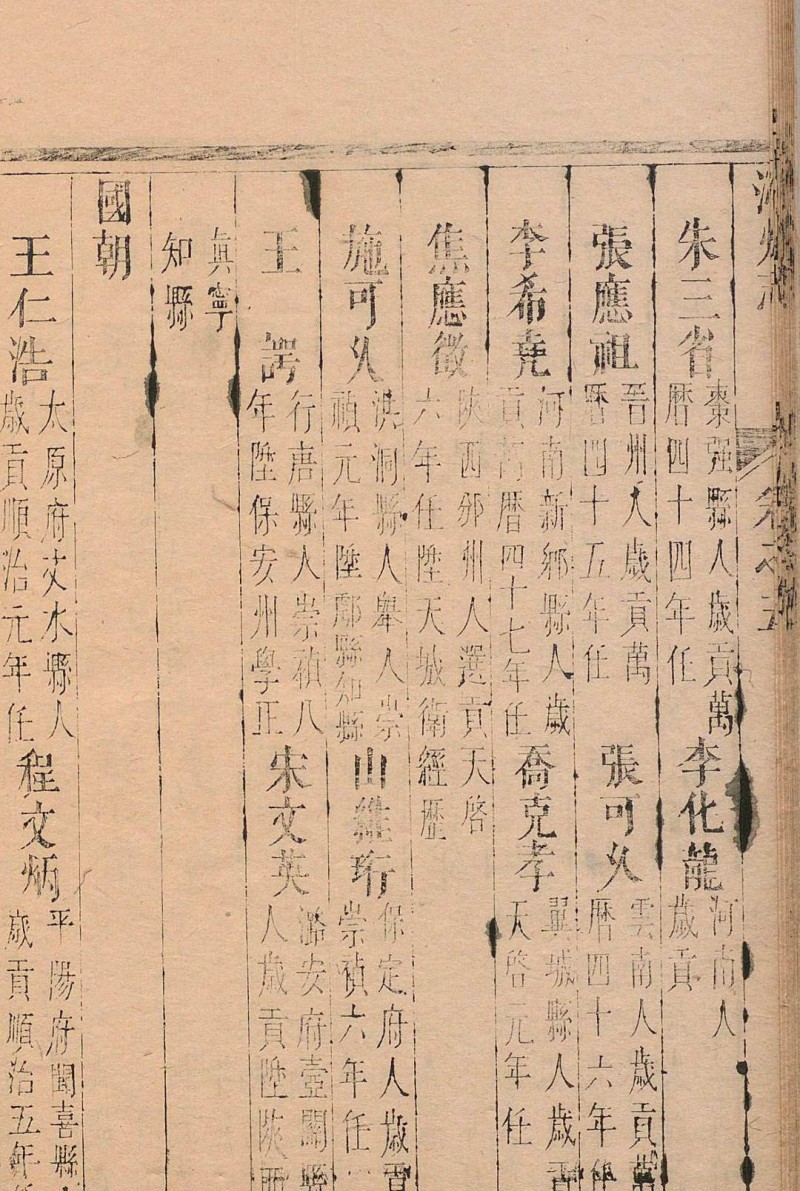 朱三省 棗强縣人歲貢萬
曆四十四年任
李化龍 河南人
歲貢
張應祖 晉州人歲貢萬
曆四十五年任
張可久 雲南人歲貢萬
曆四十六年任
李希堯 河南新鄉縣人歲
貢萬曆四十七年任
喬克孝 翼城縣人歲貢
天啓元年任
焦應徵 陝西邠州人選貢天啓
六年任陞天城衛經歷
施可久 洪洞縣人舉人崇
禎元年陞鄢縣知縣
山維珩 保定府人歲貢
崇禎六年任
王諤 行唐縣人崇禎八
年陞保安州學正
宋文英 潞安府壺關縣
人歲貢陞陝西
真寧
知縣
國朝
王仁浩 太原府文水縣人
歲貢順治元年任
程文炳 平陽府聞喜縣
歲貢順治五年任